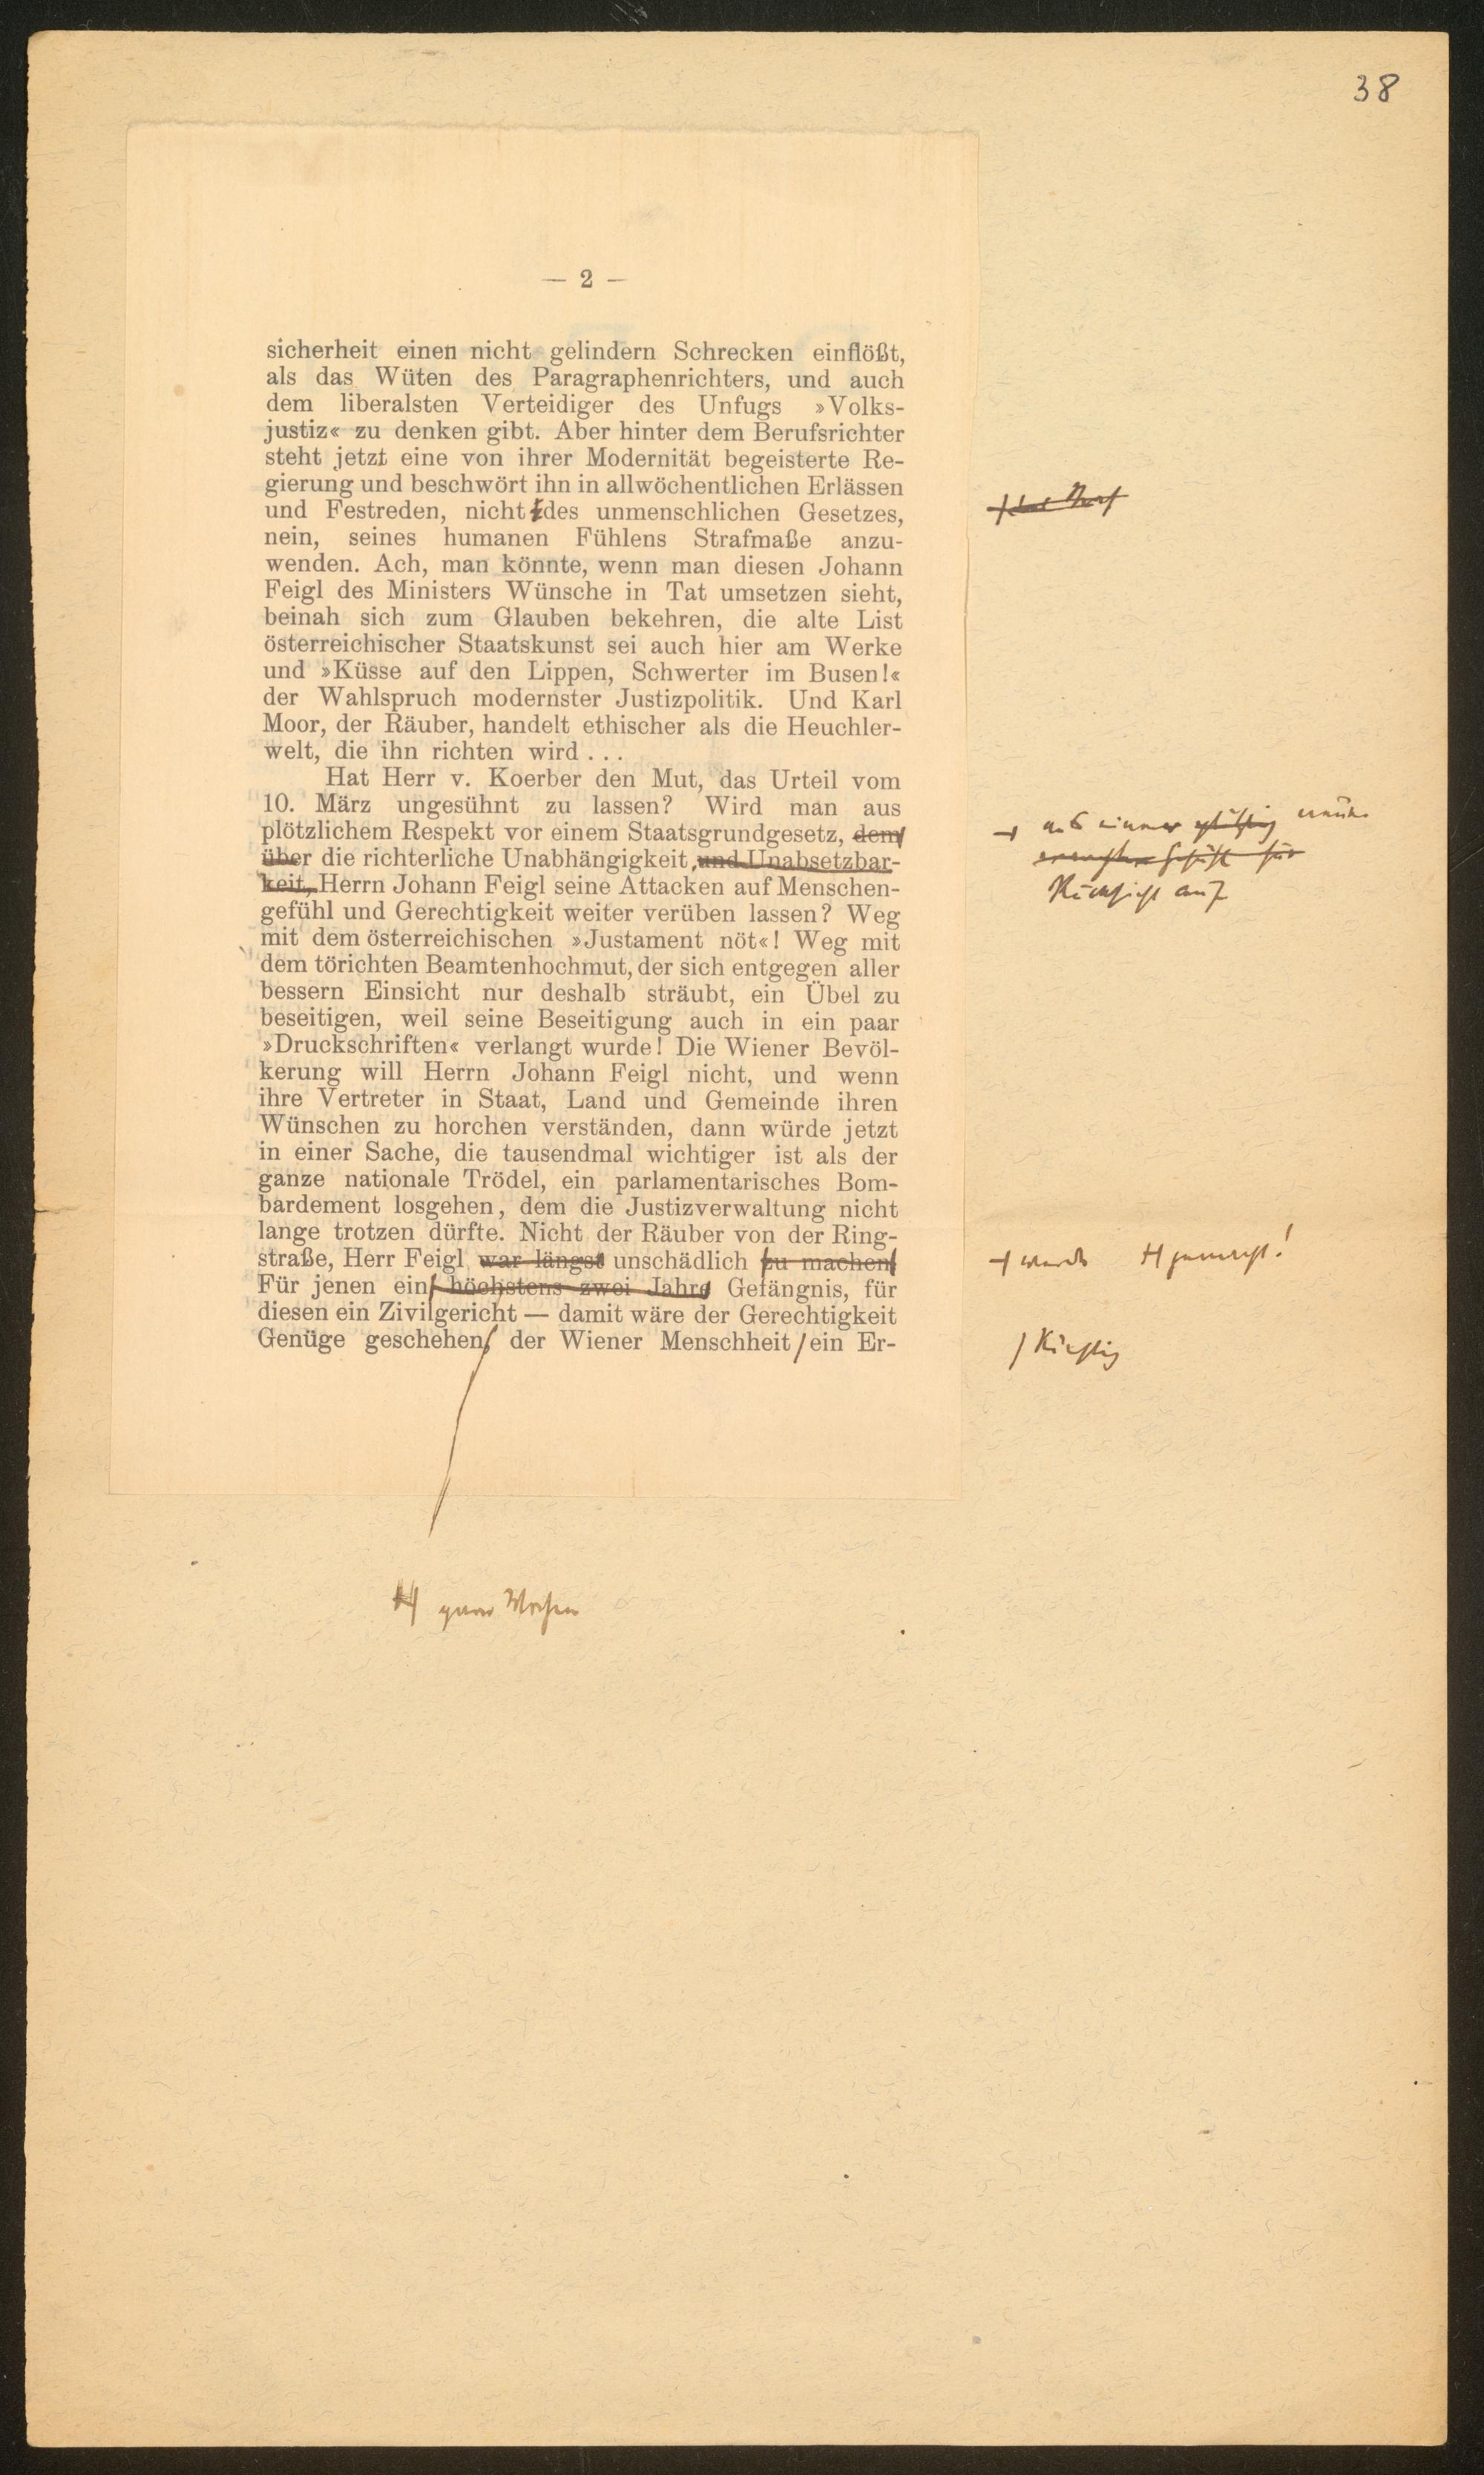 38
— 2 —
sicherheit einen nicht gelindern Schrecken einflößt,
als das Wüten des Paragraphenrichters, und auch
dem liberalsten Verteidiger des Unfugs »Volks-
justiz« zu denken gibt. Aber hinter dem Berufsrichter
steht jetzt eine von ihrer Modernität begeisterte Re-
gierung und beschwört ihn in allwöchentlichen Erlässen
und Festreden, nicht des unmenschlichen Gesetzes,
nein, seines humanen Fühlens Strafmaße anzu-
wenden. Ach, man könnte, wenn man diesen Johann
Feigl des Ministers Wünsche in Tat umsetzen sieht,
beinah sich zum Glauben bekehren, die alte List
österreichischer Staatskunst sei auch hier am Werke
und »Küsse auf den Lippen, Schwerter im Busen!«
der Wahlspruch modernster Justizpolitik. Und Karl
Moor, der Räuber, handelt ethischer als die Heuchler-
welt, die ihn richten wird . . .
Hat Herr v. Koerber den Mut, das Urteil vom
10. März ungesühnt zu lassen? Wird man aus
plötzlichem Respekt vor einem Staatsgrundgesetz, dem
über die richterliche Unabhängigkeit, und Unabsetzbar-
keit, Herrn Johann Feigl seine Attacken auf Menschen-
gefühl und Gerechtigkeit weiter verüben lassen? Weg
mit dem österreichischen »Justament nöt«! Weg mit
dem törichten Beamtenhochmut, der sich entgegen aller
bessern Einsicht nur deshalb sträubt, ein Übel zu
beseitigen, weil seine Beseitigung auch in ein paar
»Druckschriften« verlangt wurde! Die Wiener Bevöl-
kerung will Herrn Johann Feigl nicht, und wenn
ihre Vertreter in Staat, Land und Gemeinde ihren
Wünschen zu horchen verständen, dann würde jetzt
in einer Sache, die tausendmal wichtiger ist als der
ganze nationale Trödel, ein parlamentarisches Bom-
bardement losgehen, dem die Justizverwaltung nicht
lange trotzen dürfte. Nicht der Räuber von der Ring-
straße, Herr Feigl war längst unschädlich zu machen
Für jenen ein höchstens zwei Jahre Gefängnis, für
diesen ein Zivilgericht — damit wäre der Gerechtigkeit
Genüge geschehen, der Wiener Menschheit / ein Er-
aus einer
Rücksicht auf
werde gemacht!
/ künftig
paar Wochen